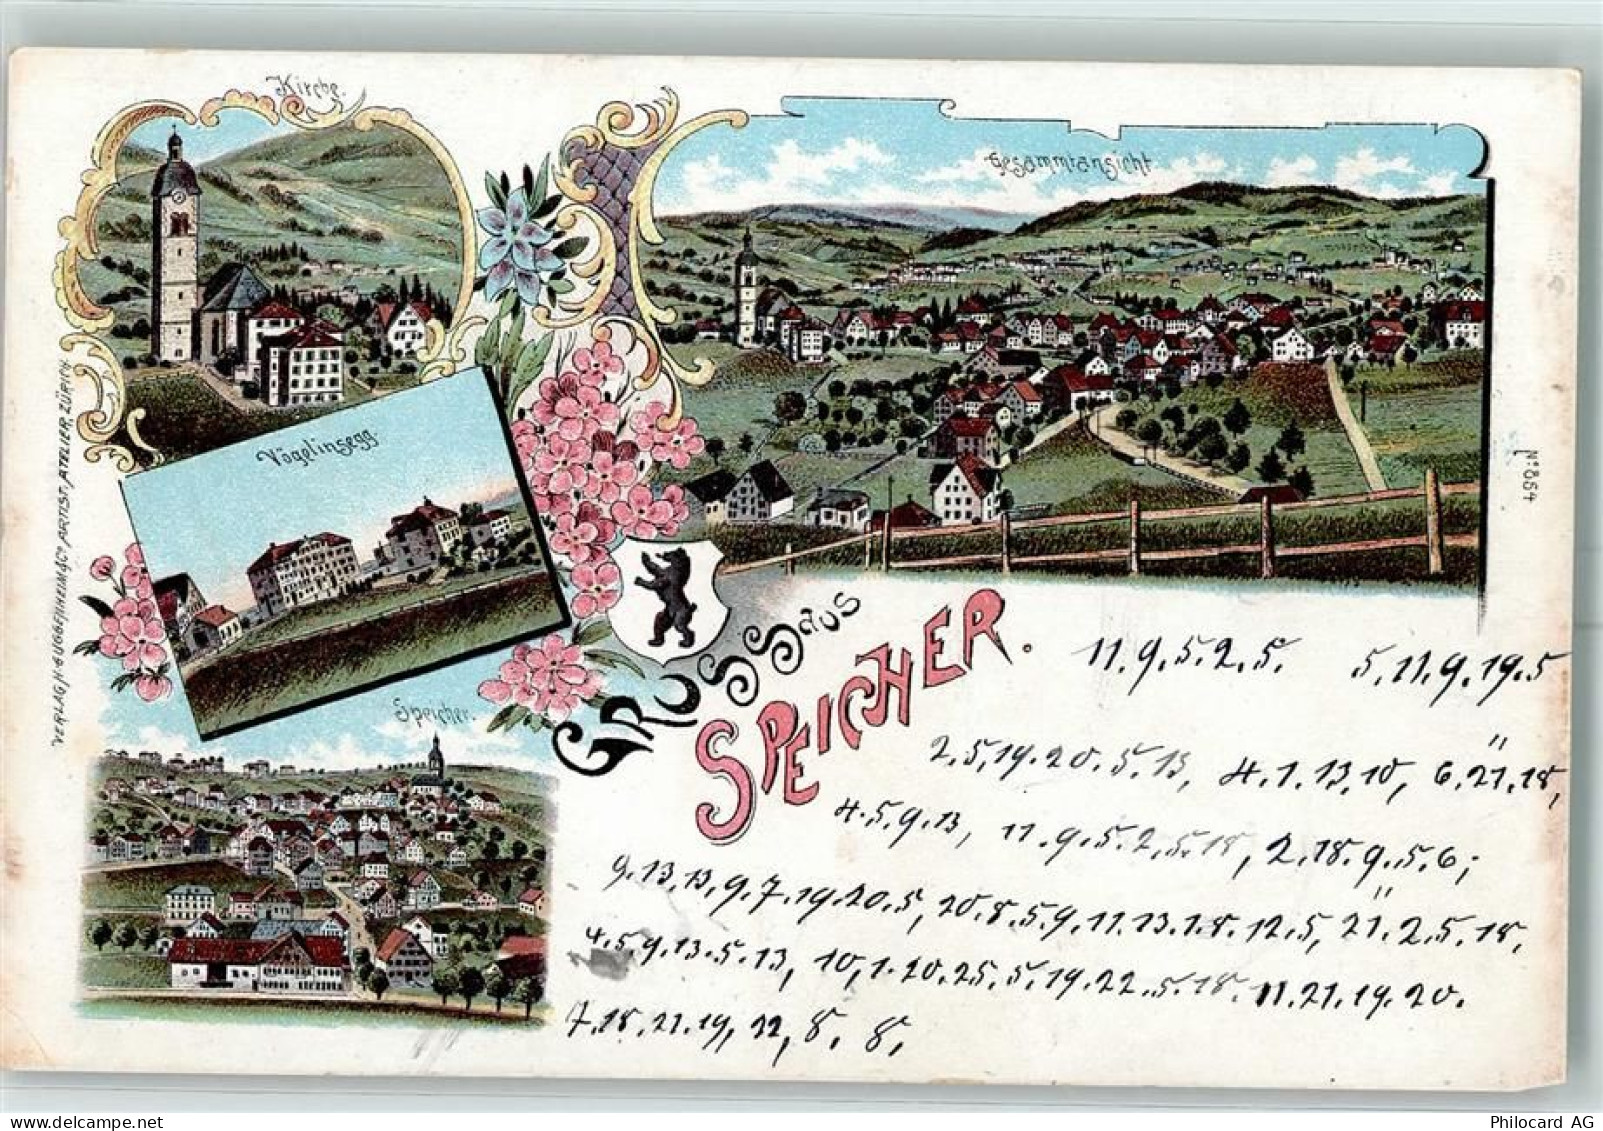 Kirche.
Gesammtansicht
Vögelinsegg.
VERLAG, H. GUGGENHEIM & Co, ARTIST, ATELIER, ZÜRICH.
No 854
GRUSS aus
SPEICHER.
Speicher.
11.9.5.2.5. 5.11.9.19.5
2.5,19.20.5.13, 4.1.13,10, 6.21.18,
4.5.9.13, 11.9.5.2.5.18, 2.18.9.5.6;
9.13,13,9.7.19.20.5, 20.8.5.9.11.13.1.8.12.5, 21.2.5.18.
4.5.9.13.5.13, 10,1.20.25.5.19.22.5.18. 11.21.19.20.
7.18.21.19, 22, 8. 8.
Philocard AG